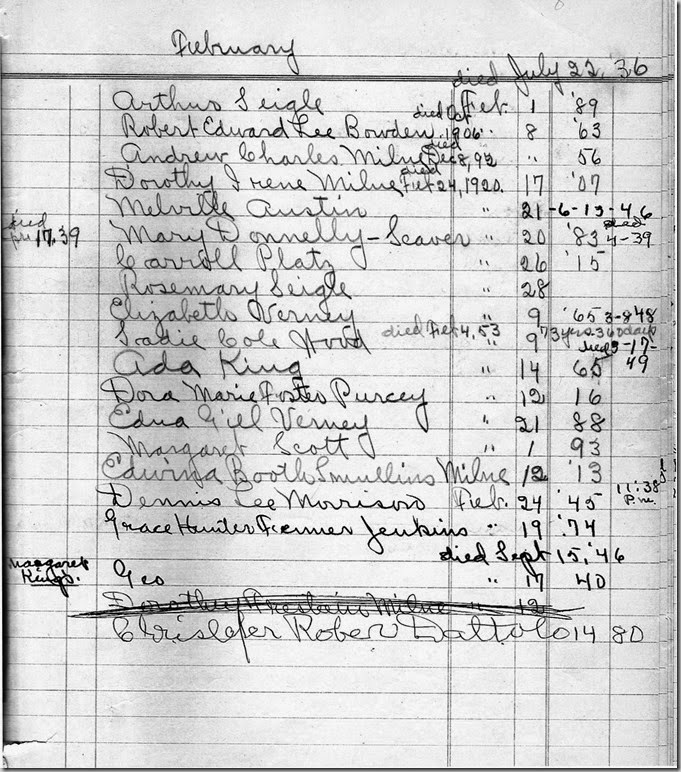 February
died July 22, '36
Arthur Seigle Feb. 1 '89
Robert Edward Lee Bowden died Oct. 1906 " 8 '63
Andrew Charles Milne died Dec 8, 92 " 56
Dorothy Irene Milne died Feb 24, 1920. 17 '07
Melville Austin " 21 -6-13-46
died 17, 39 Mary Donnelly-Seaver " 20 '83 died 4-39
Carroll Platz " 26 '15
Rosemary Seigle " 28
Elizabeth Verney " 9 '65 3-8 48
Sadie Cole Hood died Feb 4, 53 " 9 73 yrs-360 days
died 3-17-49
Ada King " 14 65
Dora Marie Foster Purcey " 12 16
Edna Gill Verney " 21 88
Margaret Scott " 1 93
Edwina Booth Smullins Milne 12 '13
Dennis Lee Morrison Feb. 24 '45 11:38 P.m.
Grace Hunter Farmer Jenkins " 19 '74
died Sept 15, '46
Margaret King's. Geo " 17 40
Dorothy Milne " 12
Robert Dattolo 14 80